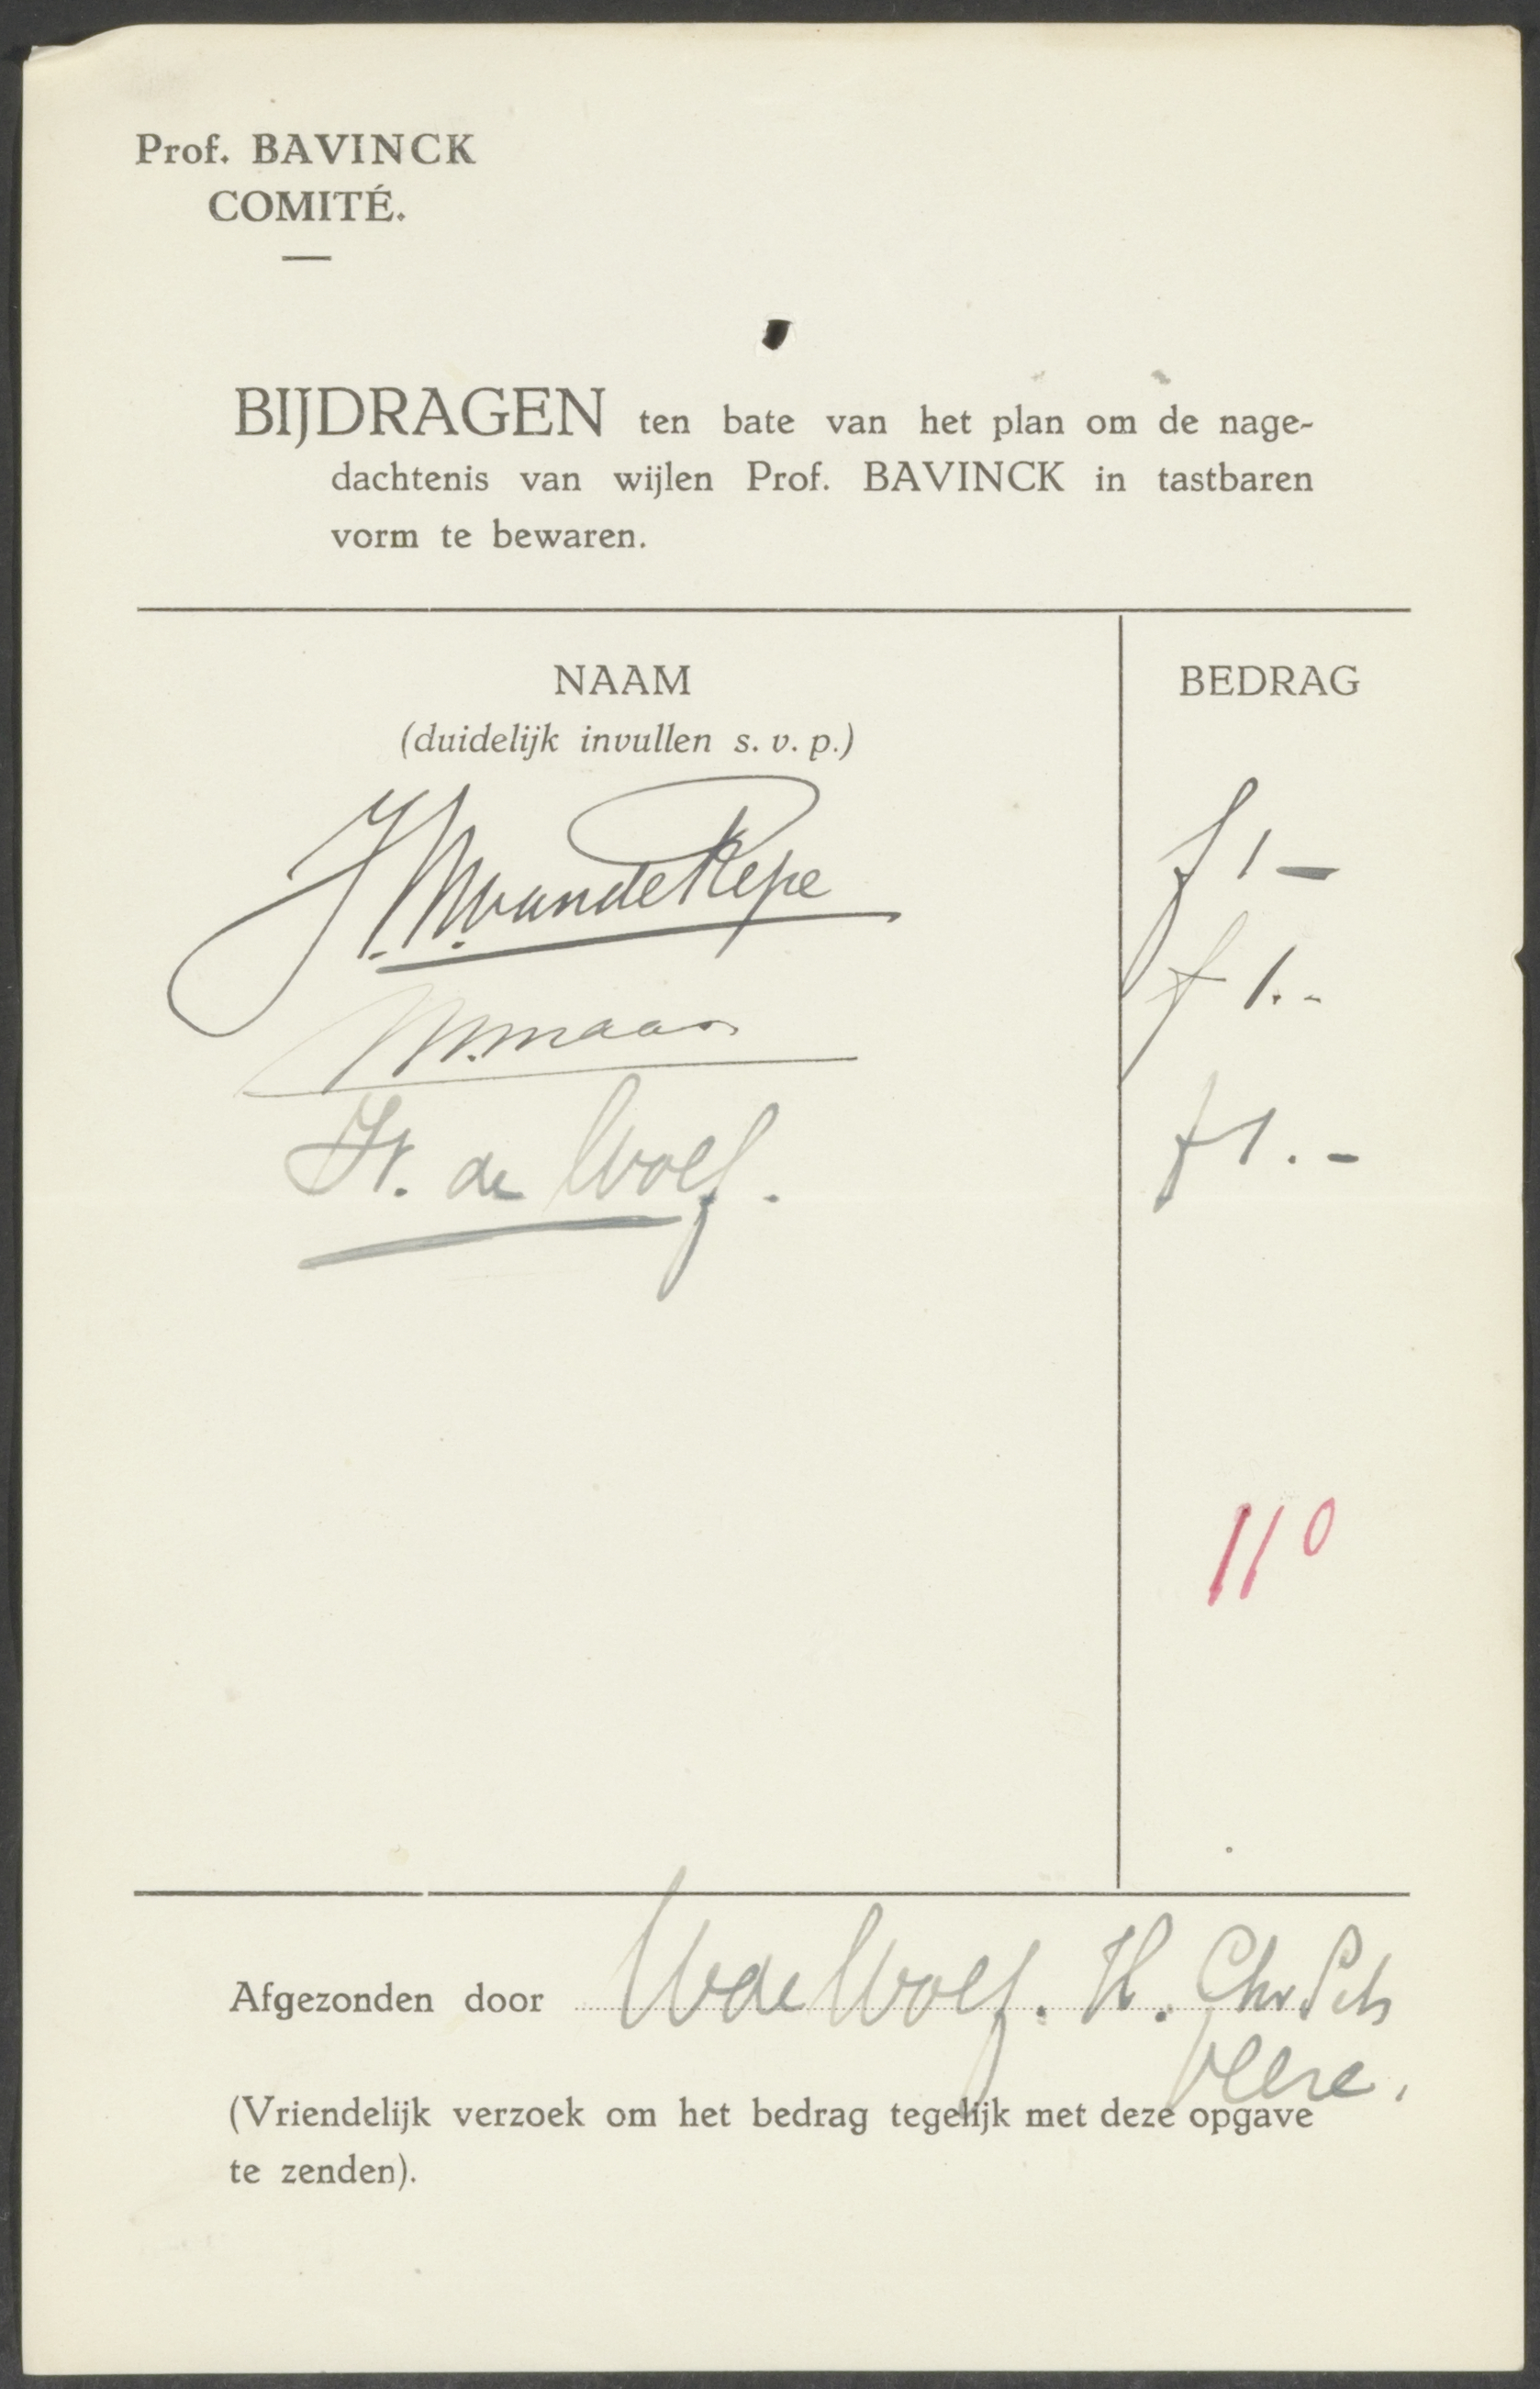 Prof. BAVINCK
COMITÉ.
BIJDRAGEN ten bate van het plan om de nage-
dachtenis van wijlen Prof. BAVINCK in tastbaren
vorm te bewaren.
NAAM BEDRAG
(duidelijk invullen s. v. p.)
J. M. van de Repe f 1 -
M. maas f 1. -
de Wolf. f 1. -
110
Afgezonden door WdeWolf. H. Chr. Sch
Veere.
(Vriendelijk verzoek om het bedrag tegelijk met deze opgave
te zenden).